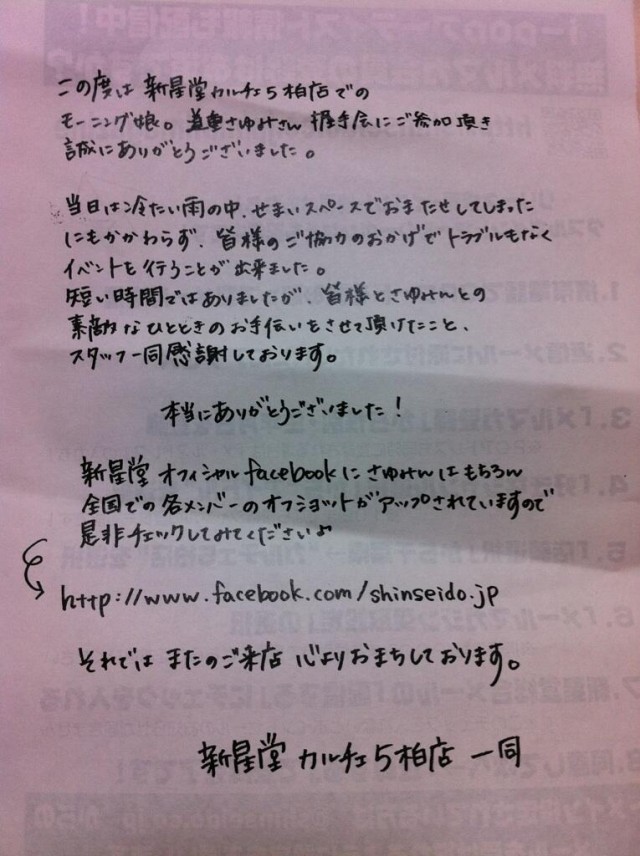 この度は 新星堂カルチェ5柏店での
モーニング娘。道重さゆみさん 握手会にご参加頂き
誠にありがとうございました。
当日は冷たい雨の中、せまいスペースでおまたせしてしまった
にもかかわらず、皆様のご協力のおかげでトラブルもなく
イベントを行うことが出来ました。
短い時間ではありましたが、皆様とさゆみんとの
素敵なひとときのお手伝いをさせて頂けたこと、
スタッフ一同感謝しております。
本当にありがとうございました!
新星堂オフィシャルfacebookにさゆみんはもちろん
全国での各メンバーのオフショットがアップされていますので
是非チェックしてみてくださいよ
http://www.facebook.com/shinseido.jp
それでは またのご来店 心よりおまちしております。
新星堂 カルチェ5柏店 一同